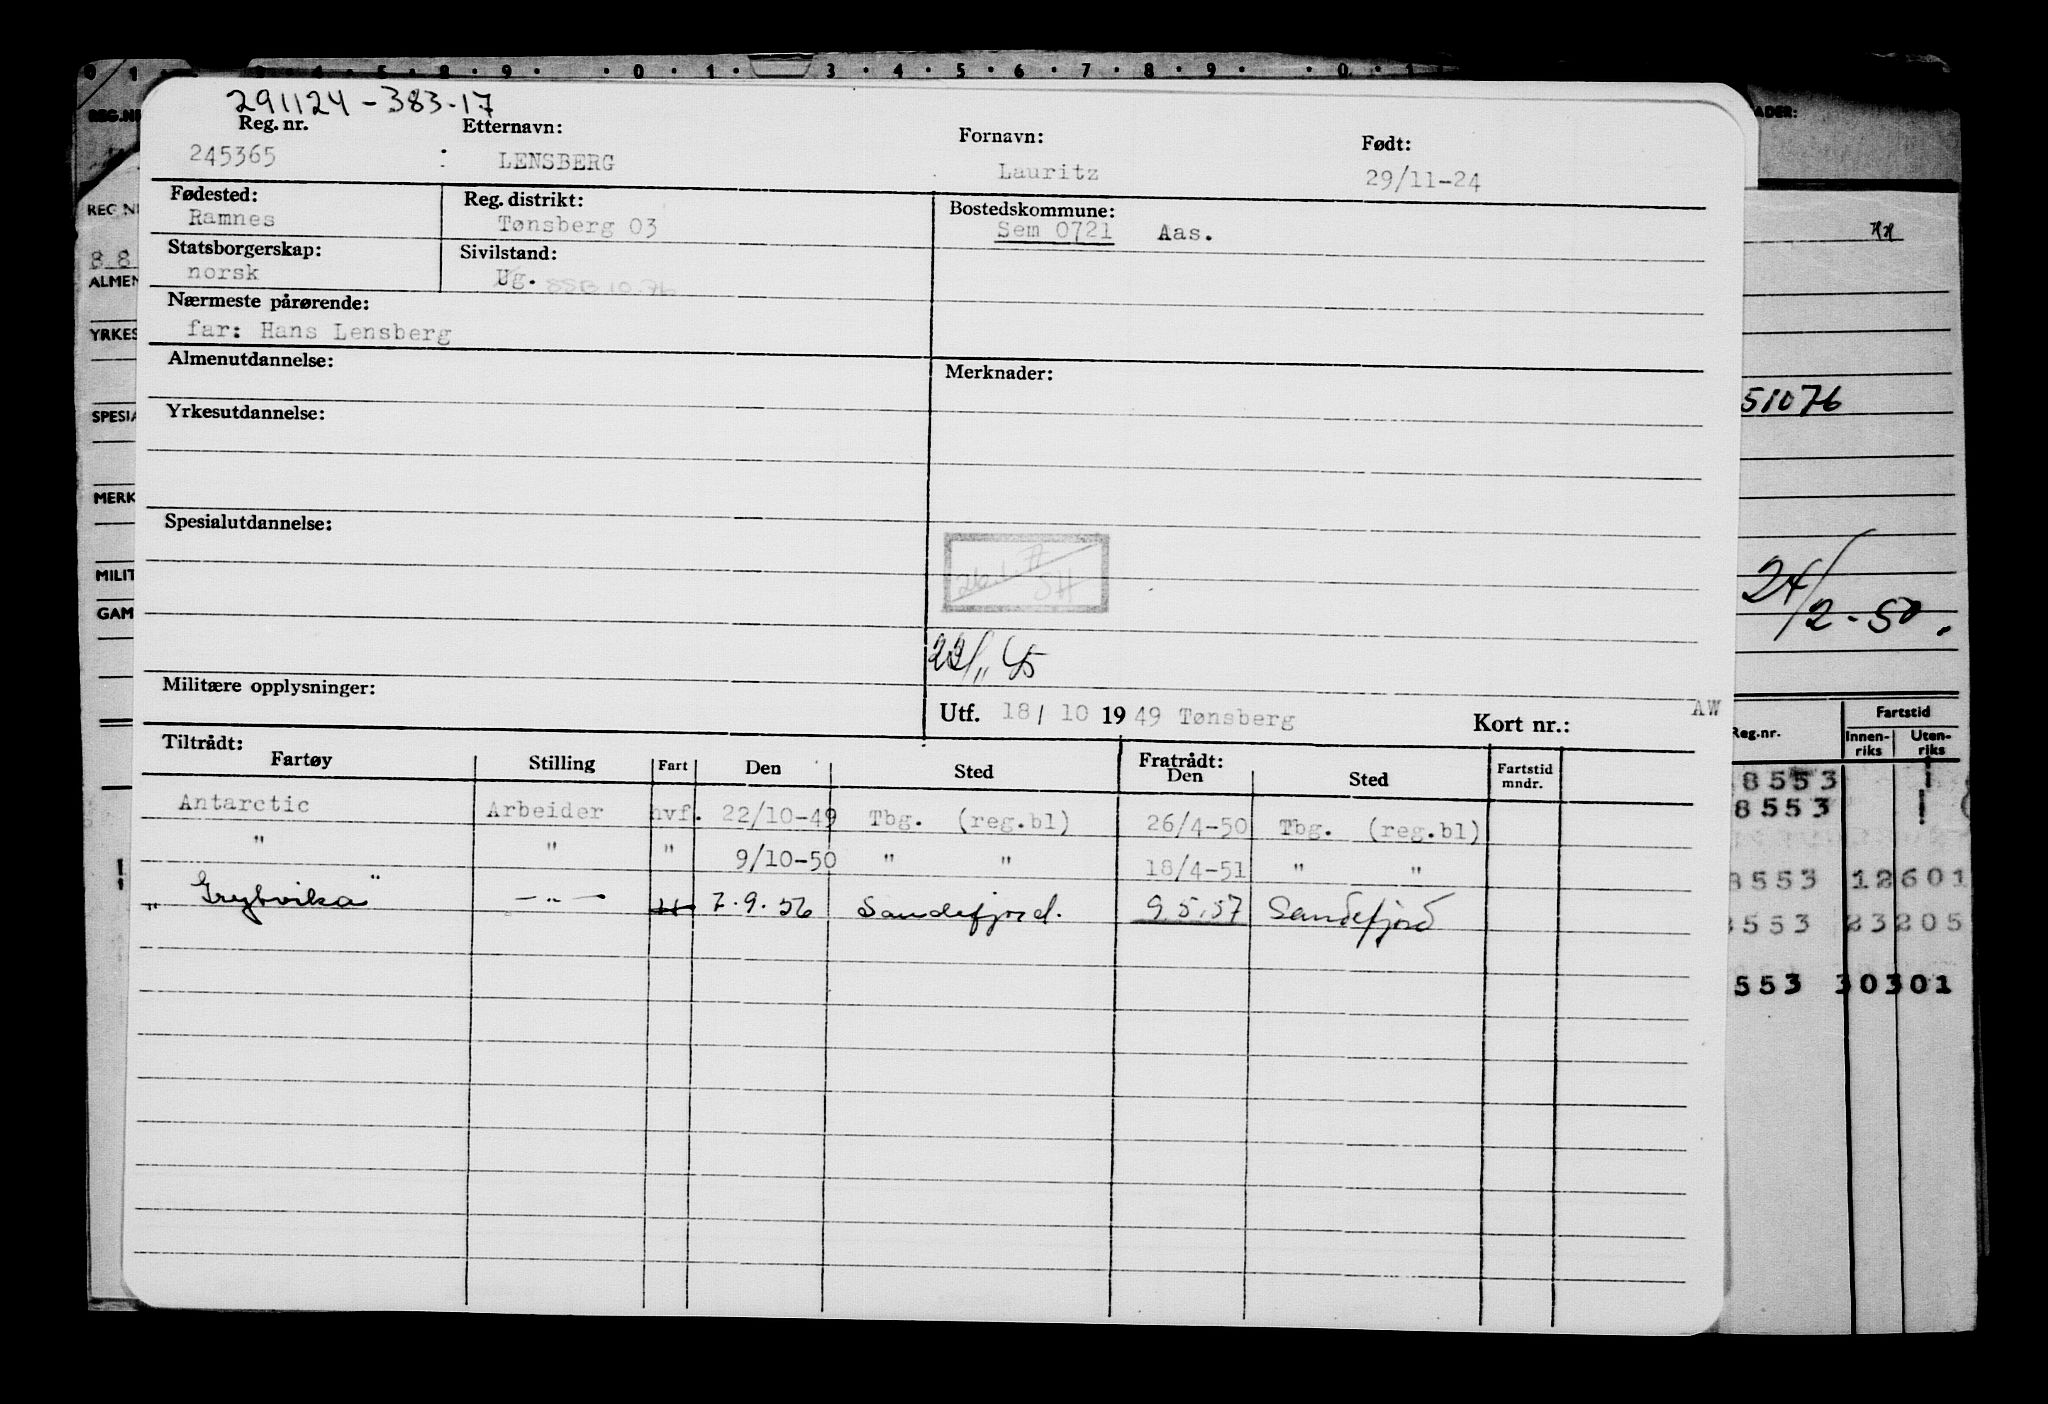 0 1 3 4 5 8 9 0 1 3 4 5 6 7 8 9 0 1
REG.NR
ADER:
291124-383-17
Reg. nr. Etternavn: Fornavn: Født:
245365 : LENSBERG Lauritz 29/11-24
Fødested: Reg. distrikt: Bostedskommune:
Ramnes Tønsberg 03 Sem 0721 Aas.
Statsborgerskap: Sivilstand:
norsk Ug. SSB 10.76
Nærmeste pårørende:
far: Hans Lensberg
Almenutdannelse: Merknader:
Yrkesutdannelse:
Spesialutdannelse:
SH
22/11 45
Militære opplysninger:
Utf. 18/ 10 1949 Tønsberg Kort nr.: AW
Tiltrådt: Fratrådt:
Fartøy Stilling Fart Den Sted Den Sted Fartstid mndr.
Antarctic Arbeider hvf. 22/10-49 Tbg. (reg.bl) 26/4-50 Tbg. (reg.bl)
" " " 9/10-50 " " 18/4-51 " "
" Grytvika" —"— H 7.9.56 Sandefjord. 9.5.57 Sandefjord
REG NR
88
ALMEN
YRKES
SPESIA
MERK
MILIT
GAM
51076
24/2-50.
Reg.nr. Fartstid
Innen-riks Uten-riks
8553
8553
8553 12601
8553 23205
553 30301